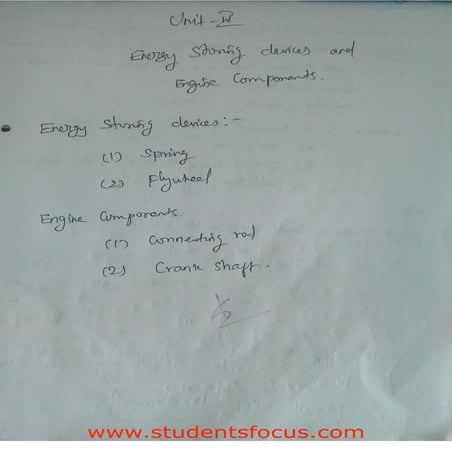 Unit - IV
Energy Storing devices and
Engine Components.
Energy Storing devices:-
(1) Spring
(2) Flywheel
Engine Components
(1) Connecting rod
(2) Crank shaft.
www.studentsfocus.com